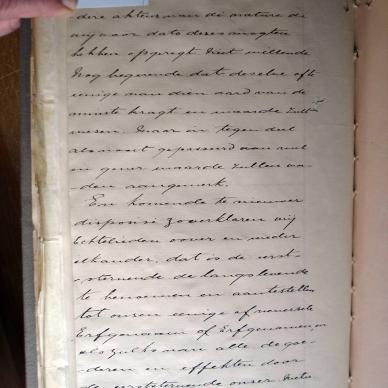 dere akten van die nature de
wij voor dato deses mogten
hebben opgeregt niet willende
nog begerende dat deselve ofte
eenige van dien aard van de
minste kragt en waarde zullen
wesen. Maar in tegendeel
als nooit gepasseerd van nul
en geener waarde zullen wor
den aangemerk.
En komende te nieuwer
disposisi zo verklaren wij
Echtelieden over en weder
elkander, dat is de eerst-
stervende de langslevende
te benoemen en aantestellen
tot onsen eenige universele
Erfgenaam of Erfgenamen, en
als zulks van alle de goe-
deren en effekten door
de eerststervende onser